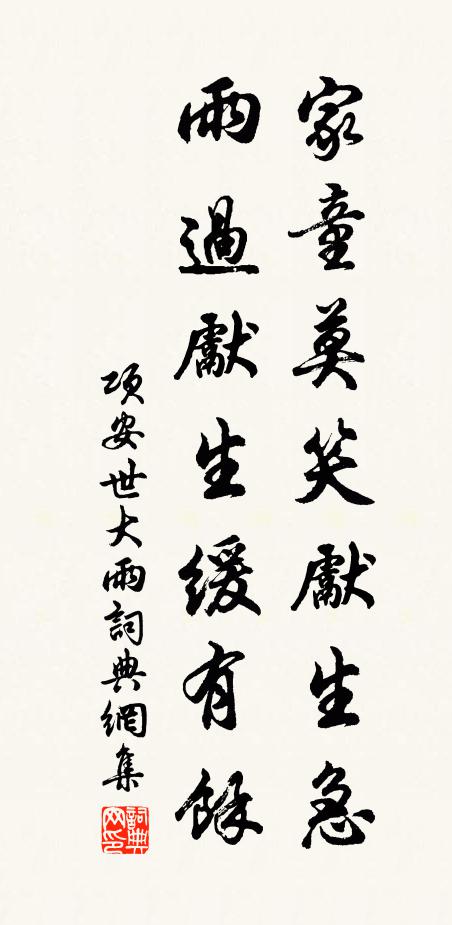 家童莫笑獻生急
雨過獻生緩有餘
項安世大雨詞典網集
詞典網印